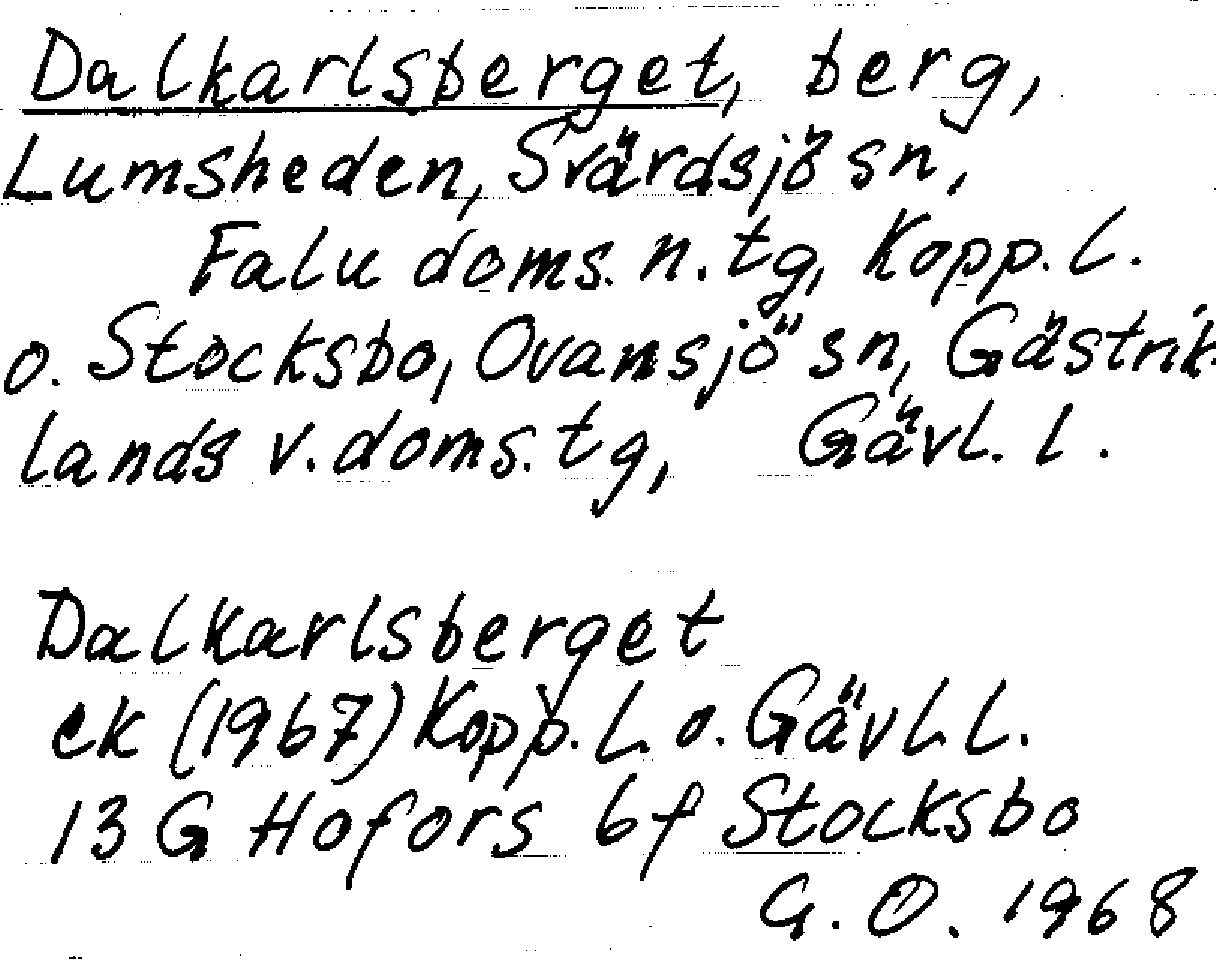 Dalkarlsberget, berg,
Lumsheden, Svärdsjö sn,
Falu doms. n. tg, Kopp. l.
o. Stocksbo, Ovansjö sn, Gästrik-
lands v. doms. tg, Gävl. l.
Dalkarlsberget
ek (1967) Kopp. l. o. Gävl. l.
13 G Hofors 6f Stocksbo
G. O. 1968